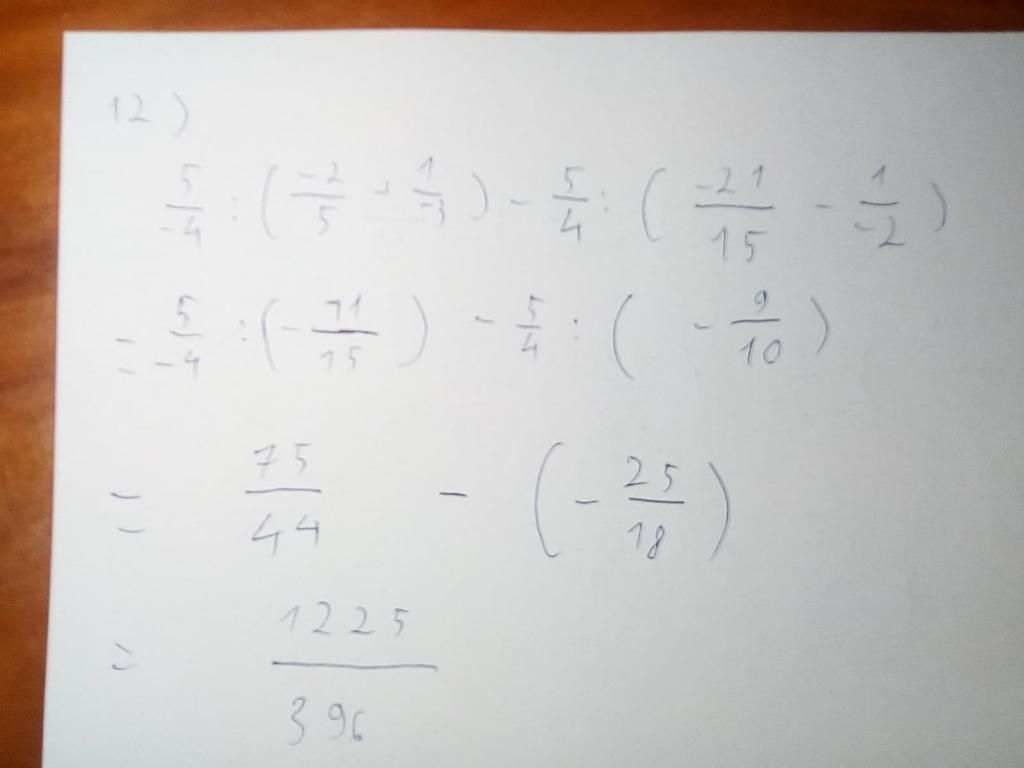 12)
5/-4 : (-2/5 + 1/-3) - 5/4 : (-21/15 - 1/-2)
= 5/-4 : (- 11/15) - 5/4 : (- 9/10)
= 75/44 - (- 25/18)
= 1225/396